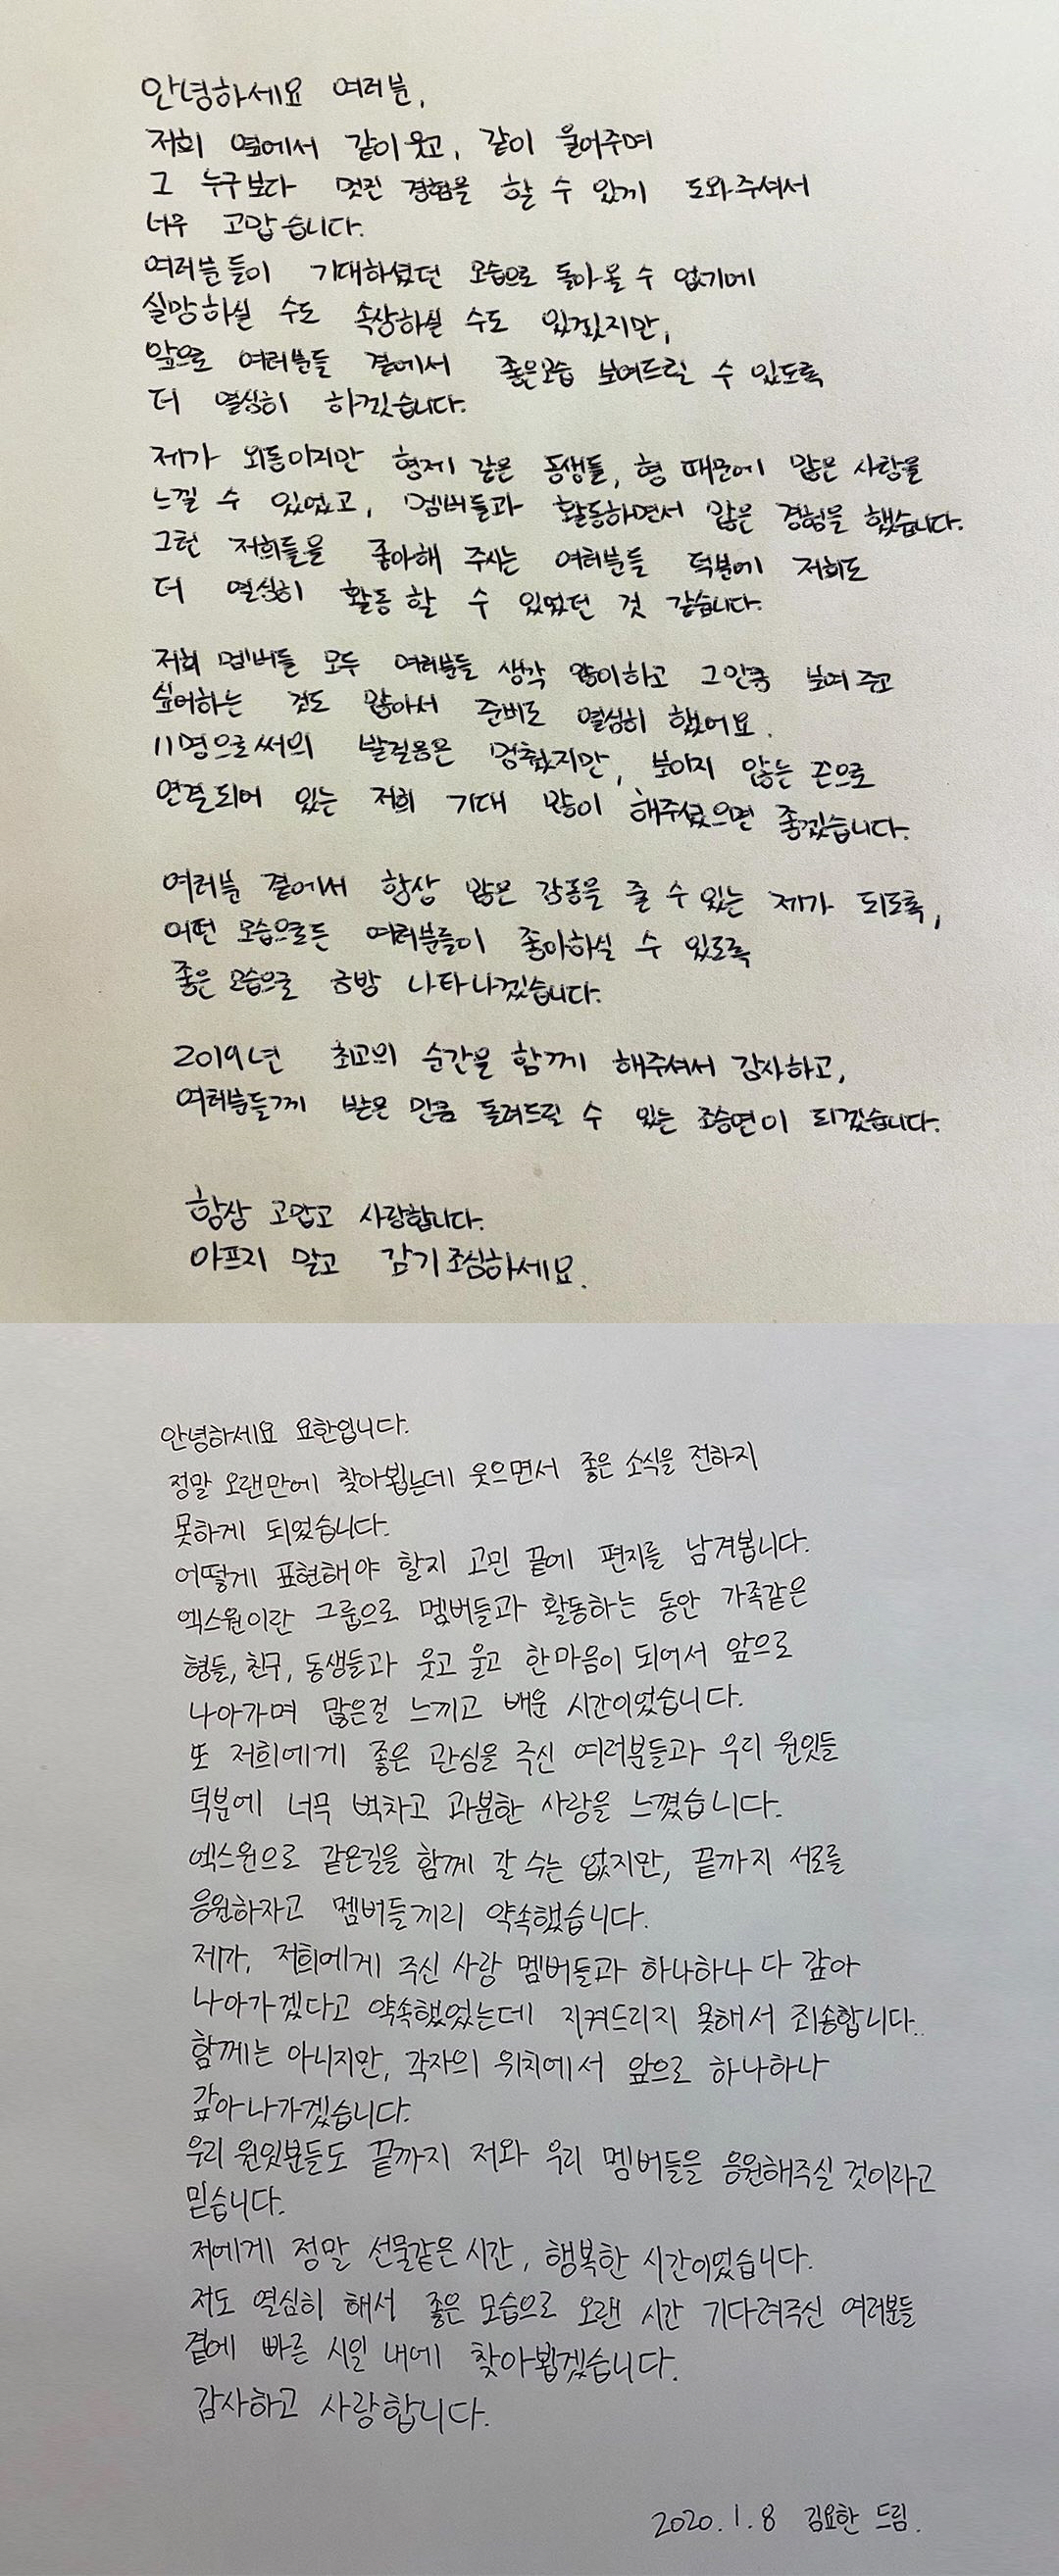 안녕하세요 여러분,
저희 옆에서 같이 웃고, 같이 울어주며
그 누구보다 멋진 경험을 할 수 있게 도와주셔서
너무 고맙습니다.
여러분들이 기대하셨던 모습으로 돌아올 수 없기에
실망하실 수도 속상하실 수도 있겠지만,
앞으로 여러분들 곁에서 좋은모습 보여드릴 수 있도록
더 열심히 하겠습니다.
제가 외동이지만 형제 같은 동생들, 형 때문에 많은 사랑을
느낄 수 있었고, 멤버들과 활동하면서 많은 경험을 했습니다.
그런 저희들을 좋아해 주시는 여러분들 덕분에 저희도
더 열심히 활동 할 수 있었던 것 같습니다.
저희 멤버들 모두 여러분들 생각 많이하고 그만큼 보여 주고
싶어하는 것도 많아서 준비도 열심히 했어요.
11명으로써의 발걸음은 멈췄지만, 보이지 않는 끈으로
연결되어 있는 저희 기대 많이 해주셨으면 좋겠습니다.
여러분 곁에서 항상 많은 감동을 줄 수 있는 제가 되도록,
어떤 모습으로든 여러분들이 좋아하실 수 있도록
좋은 모습으로 금방 나타나겠습니다.
2019년 최고의 순간을 함께 해주셔서 감사하고,
여러분들께 받은 만큼 돌려드릴 수 있는 조승연이 되겠습니다.
항상 고맙고 사랑합니다.
아프지 말고 감기조심하세요.
안녕하세요 요한입니다.
정말 오랜만에 찾아뵙는데 웃으면서 좋은 소식을 전하지
못하게 되었습니다.
어떻게 표현해야 할지 고민 끝에 편지를 남겨봅니다.
엑스원이란 그룹으로 멤버들과 활동하는 동안 가족같은
형들, 친구, 동생들과 웃고 울고 한마음이 되어서 앞으로
나아가며 많은걸 느끼고 배운 시간이었습니다.
또 저희에게 좋은 관심을 주신 여러분들과 우리 원잇들
덕분에 너무 벅차고 과분한 사랑을 느꼈습니다.
엑스원으로 같은길을 함께 갈 수는 없지만, 끝까지 서로를
응원하자고 멤버들끼리 약속했습니다.
제가, 저희에게 주신 사랑 멤버들과 하나하나 다 갚아
나아가겠다고 약속했었는데 지켜드리지 못해서 죄송합니다..
함께는 아니지만, 각자의 위치에서 앞으로 하나하나
갚아나가겠습니다.
우리 원잇분들도 끝까지 저와 우리 멤버들을 응원해주실 것이라고
믿습니다.
저에게 정말 선물같은 시간, 행복한 시간이었습니다.
저도 열심히 해서 좋은 모습으로 오랜 시간 기다려주신 여러분들
곁에 빠른 시일 내에 찾아뵙겠습니다.
감사하고 사랑합니다.
2020.1.8 김요한 드림.